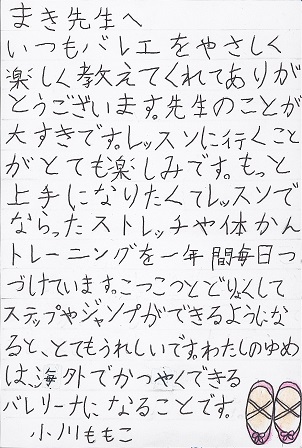 まき先生へ
いつもバレエをやさしく
楽しく教えてくれてありが
とうございます。先生のことが
大すきです。レッスンに行くこと
がとても楽しみです。もっと
上手になりたくてレッスンで
ならったストレッチや体かん
トレーニングを一年間毎日つ
づけています。こつこつとどりょくして
ステップやジャンプができるようにな
ると、とてもうれしいです。わたしのゆめ
は、海外でかつやくできる
バレリーナになることです。
小川ももこ